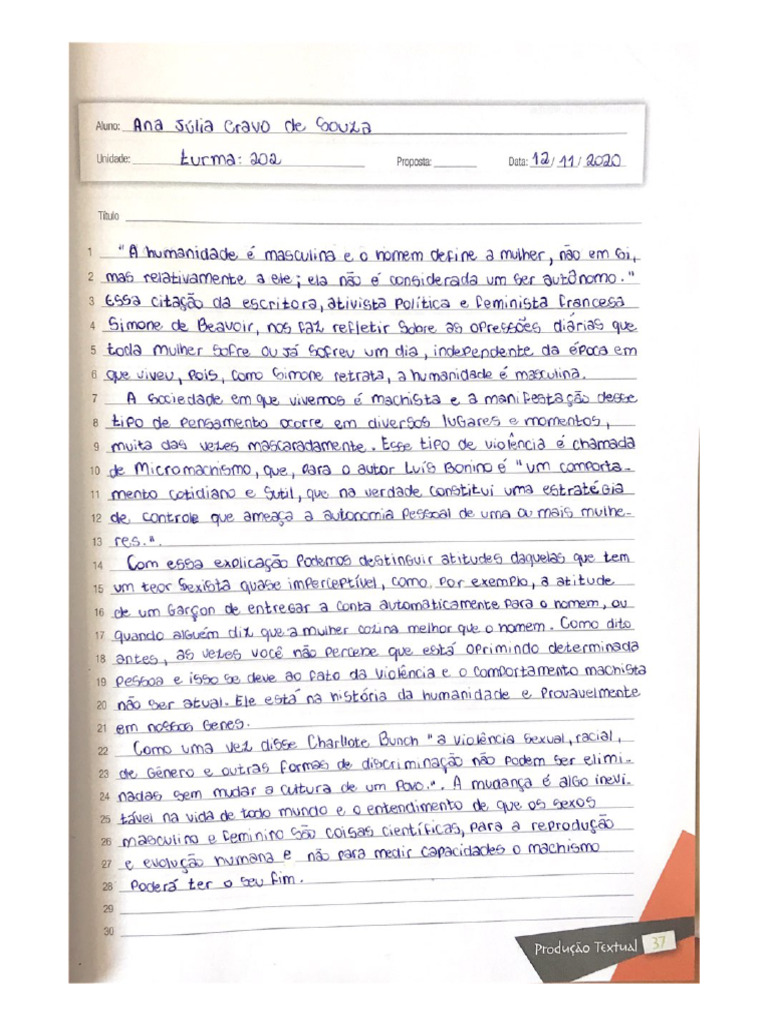 Aluno: Ana Júlia Cravo de Souza
Unidade: turma: 202 Proposta: Data: 12/11/2020
Título
1 "A humanidade é masculina e o homem define a mulher, não em si,
2 mas relativamente a ele; ela não é considerada um ser autônomo."
3 Essa citação da escritora, ativista política e feminista francesa
4 Simone de Beavoir, nos faz refletir sobre as opressões diárias que
5 toda mulher sofre ou já sofreu um dia, independente da época em
6 que viveu, pois, como Simone retrata, a humanidade é masculina.
7 A sociedade em que vivemos é machista e a manifestação desse
8 tipo de pensamento ocorre em diversos lugares e momentos,
9 muita das vezes mascaradamente. Esse tipo de violência é chamada
10 de Micromachismo, que, para o autor Luís Bonino é "um comporta-
11 mento cotidiano e sutil, que na verdade constitui uma estratégia
12 de controle que ameaça a autonomia pessoal de uma ou mais mulhe-
13 res.".
14 Com essa explicação podemos destinguir atitudes daquelas que tem
15 um teor sexista quase imperceptível, como, por exemplo, a atitude
16 de um garçon de entregar a conta automaticamente para o homem, ou
17 quando alguém diz que a mulher cozina melhor que o homem. Como dito
18 antes, as vezes você não percebe que está oprimindo determinada
19 pessoa e isso se deve ao fato da violência e o comportamento machista
20 não ser atual. Ele está na história da humanidade e provavelmente
21 em nossos genes.
22 Como uma vez disse Charllote Bunch "a violência sexual, racial,
23 de gênero e outras formas de discriminação não podem ser elimi-
24 nadas sem mudar a cultura de um povo.". A mudança é algo inevi-
25 tável na vida de todo mundo e o entendimento de que os sexos
26 masculino e feminino são coisas científicas, para a reprodução
27 e evolução humana e não para medir capacidades o machismo
28 poderá ter o seu fim.
29
30
Produção Textual 37